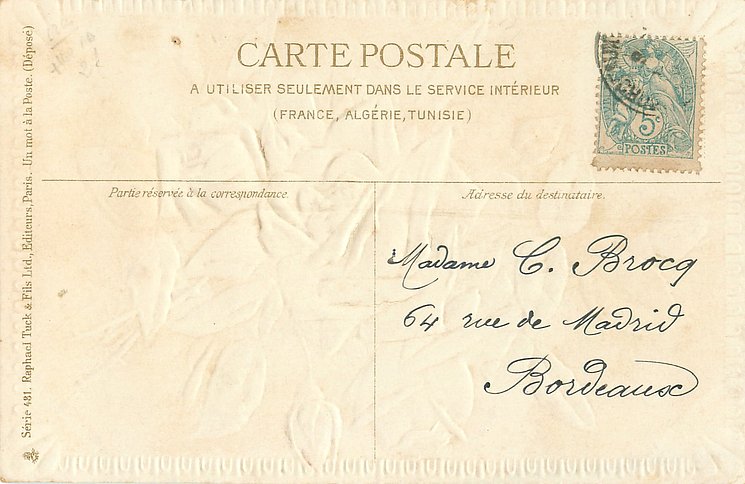 CARTE POSTALE
A UTILISER SEULEMENT DANS LE SERVICE INTÉRIEUR
(FRANCE, ALGÉRIE, TUNISIE)
5
POSTES
Partie réservée à la correspondance.
Adresse du destinataire.
Madame C. Brocq
64 rue de Madrid
Bordeaux
Série 481. Raphael Tuck & Fils Ltd., Editeurs, Paris. Un mot à la Poste. (Déposé)